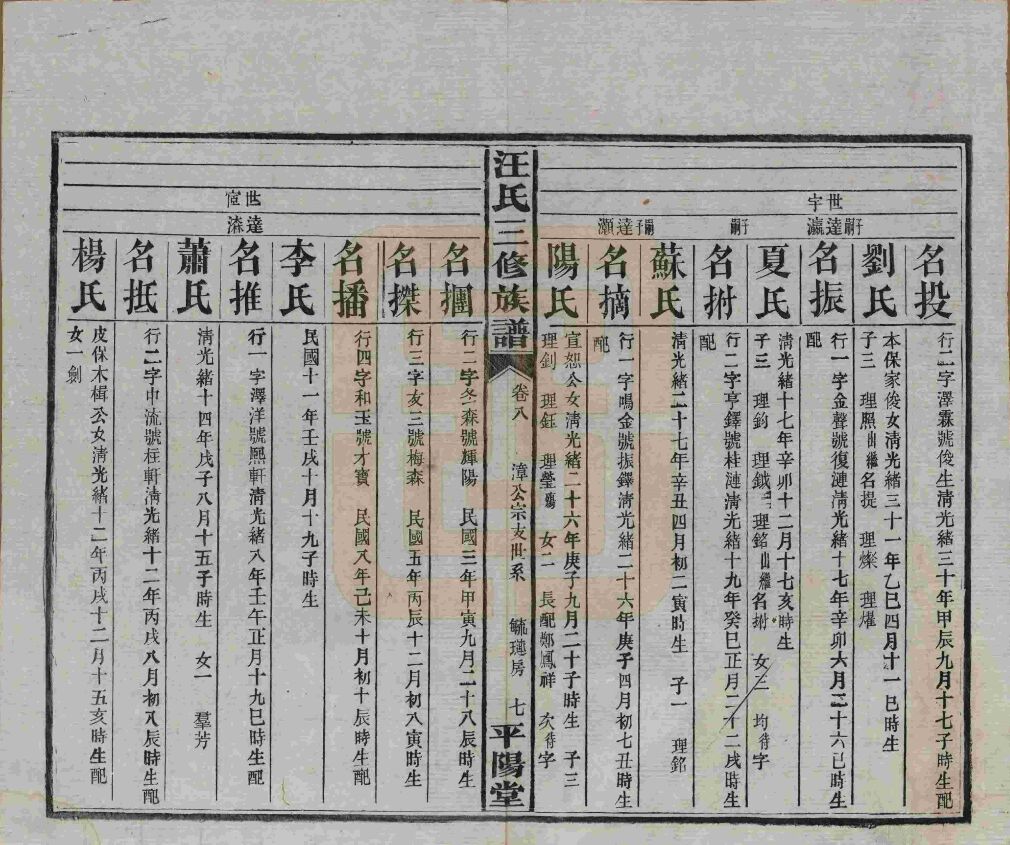 世宇
嗣子達瀛
嗣子
嗣子達灝
名投
行二字澤霖號俊生淸光緖三十年甲辰九月十七子時生配
劉氏
本保家俊女淸光緖三十一年乙巳四月十一巳時生
子三 理照出繼名提 理燦 理燿
名振
行一字金聲號復漣淸光緖十七年辛卯六月二十六己時生
配
夏氏
淸光緖十七年辛卯十二月十七亥時生
子三 理鈞 理鉞 理銘出繼名拊 女二 均待字
名拊
行二字亨鐸號桂漣淸光緖十九年癸巳正月二十二戌時生
配
蘇氏
淸光緖二十七年辛丑四月初二寅時生 子一 理銘
名摛
行一字鳴金號振鐸淸光緖二十六年庚子四月初七丑時生
配
陽氏
宣恕公女淸光緖二十六年庚子九月二十子時生 子三
理釗 理鈺 理瑩殤 女二 長配鄭鳳祥 次待字
汪氏三修族譜
卷八
漳公宗支世系 毓璉房 七
平陽堂
世宦
達滋
名摑
行二字冬森號輝陽 民國三年甲寅九月二十八辰時生
名搩
行三字友三號梅森 民國五年丙辰十二月初八寅時生
名播
行四字和玉號才寳 民國八年己未十月初十辰時生配
李氏
民國十一年壬戌十月十九子時生
名推
行一字澤洋號熙軒淸光緖八年壬午正月十九巳時生配
蕭氏
淸光緖十四年戊子八月十五子時生 女一 羣芳
名抵
行二字中流號桂軒淸光緖十二年丙戌八月初八辰時生配
楊氏
皮保木楫公女淸光緖十二年丙戌十二月十五亥時生配
女一